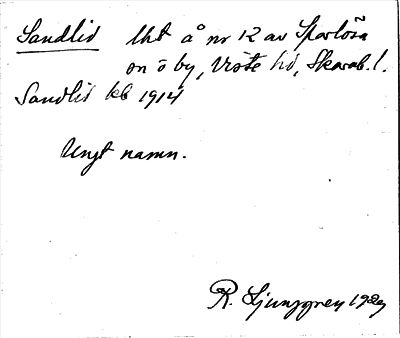 Sandlid lht å nr 12 av Sparlösa
sn ö by, Viste hd, Skarab. l.
Sandlid kb 1914
Ungt namn.
R. Ljunggren 1929